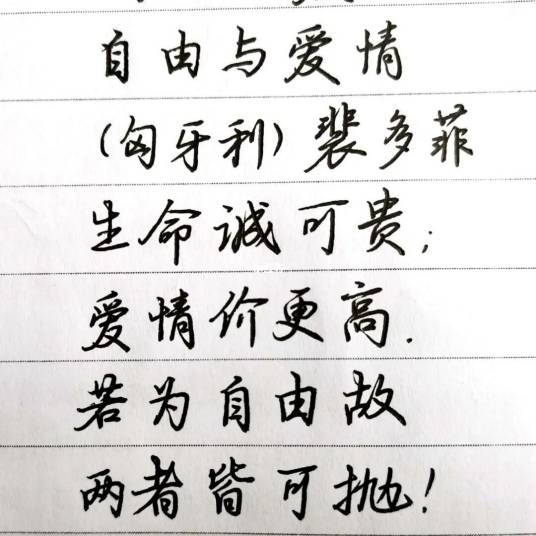 自由与爱情
(匈牙利)裴多菲
生命诚可贵;
爱情价更高.
若为自由故
两者皆可抛!